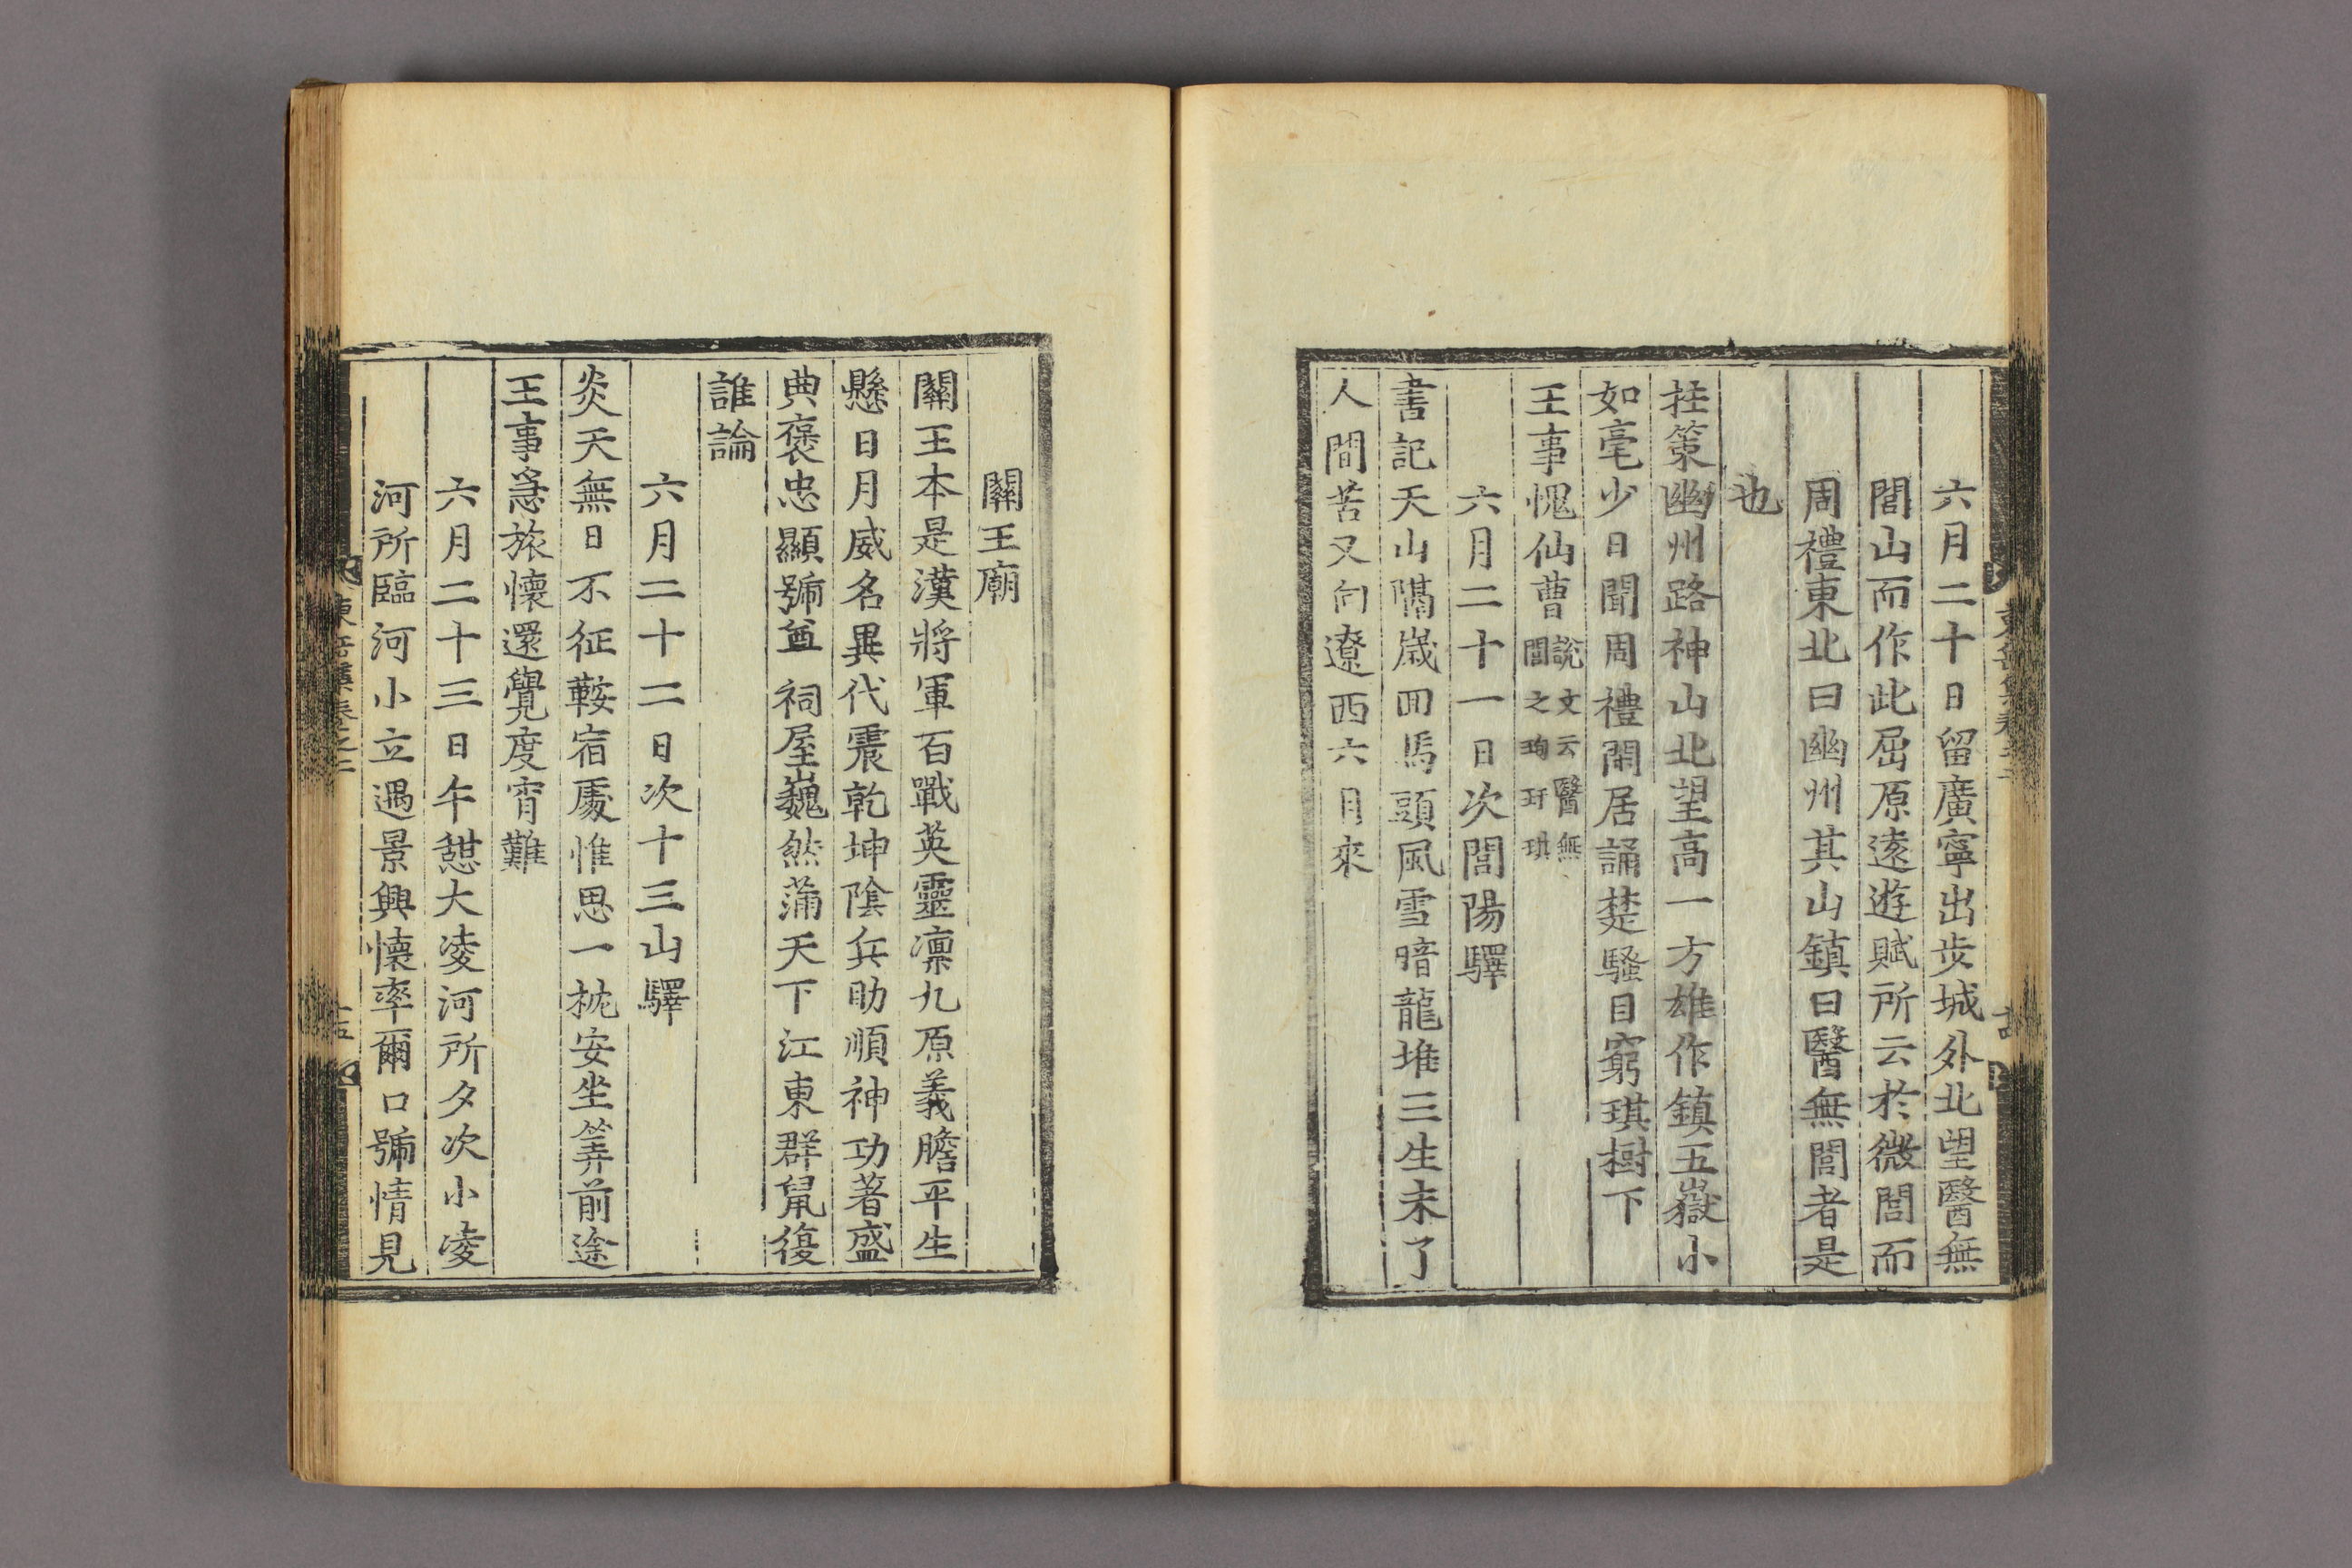 六月二十日留廣寧出步城外北望醫無
閭山而作此屈原遠遊賦所云於微閭而
周禮東北曰幽州其山鎮曰醫無閭者是
也
拄策幽州路神山北望高一方雄作鎮五嶽小
如毫少日聞周禮閑居誦楚騷目窮琪樹下
王事愧仙曹 說文云醫無
閭之珣玗琪
六月二十一日次閭陽驛
書記天山隔歲回馬頭風雪暗龍堆三生未了
人間苦又向遼西六月來
關王廟
關王本是漢將軍百戰英靈凛九原義膽平生
懸日月威名異代震乾坤陰兵助順神功著盛
典褒忠顯號尊祠屋巍然蒲天下江東群鼠復
誰論
六月二十二日次十三山驛
炎天無日不征鞍宿處惟思一枕安坐筭前途
王事急旅懷還覺度宵難
六月二十三日午憇大凌河所夕次小凌
河所臨河小立遇景興懷率爾口號情見